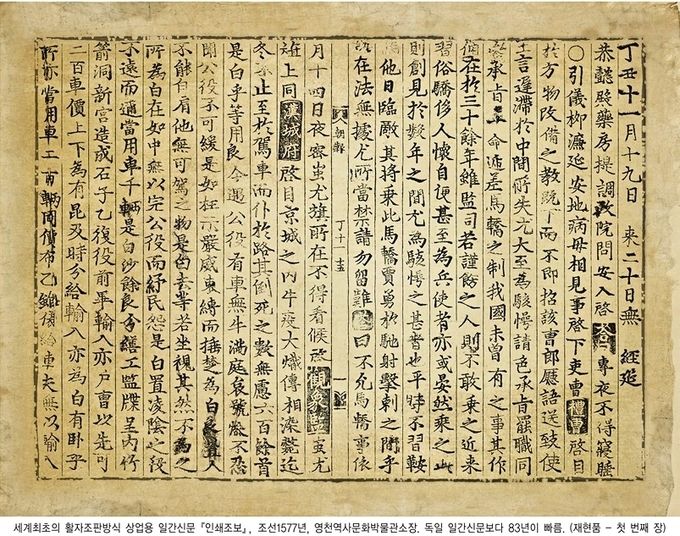 丁丑十一月十九日 來二十日無 經筵
恭懿殿藥房提調政院問安入啓 專夜不得寢睡
○引儀柳濂延安地病母相見事啓下吏曹 禮曹 啓目
於方物改備之敎旣下而不卽招該曹郞廳語送致使
王言遲滯於中間所失尤大至爲駭愕請色承旨罷職同
參承旨 命遞差馬轎之制我國未曾有之事其作
俑在於三十餘年雖監司若謹飭之人則不敢乘之近來
習俗驕侈人懷自便甚至爲兵使者亦或晏然乘之此
則創見於數年之間尤爲駭愕之甚者也平時不習鞍
馬他日臨敵其將乘此馬轎賈勇於馳射擊刺之間乎
況在法無據尤所當禁請勿留難 曰不允馬轎事依
朝報 丁十一 一
月十四日夜密蚩尤旗所在不得看候啓 觀象監 蚩尤
旗上同 漢城府 啓目京城之內牛疫大熾傳相染斃迄
冬不止至於駕車而仆於路其倒死之數無慮六百餘首
是白乎等用良今遇公役有車無牛滿庭哀號慘不忍
聞公役不可緩是如枉示嚴威束縛而捶楚爲白良置人
不能自肩他無可駕之物是白去等若坐視其然不爲之
所爲白在如中無以完公役而紓民怨是白置凌陰之役
不遠而適當用車千輛是白沙餘良今繕工監牒呈內竹
箭洞新宮造成石子乙復役前平輸入亦戶曹以先可
二百車價上下爲有昆及時分給輸入亦爲白有臥乎
所亦當用車二百輛同價布乙雖優給車夫無以輸入
세계최초의 활자조판방식 상업용 일간신문 『인쇄조보』, 조선1577년, 영천역사문화박물관소장. 독일 일간신문보다 83년이 빠름. (재현품 - 첫 번째 장)